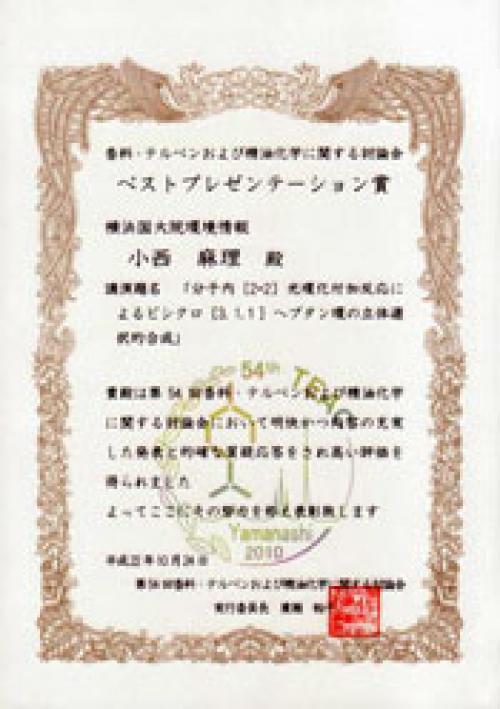 香料・テルペンおよび精油化学に関する討論会
ベストプレゼンテーション賞
横浜国大院環境情報
小西 麻理 殿
講演題名 「分子内[2+2]光環化付加反応に
よるビシクロ[3.1.1]ヘプタン環の立体選
択的合成」
54th TEAC
貴殿は第54回香料・テルペンおよび精油化学
に関する討論会において明快かつ内容の充実
した発表と的確な質疑応答をされ高い評価を
得られました
よってここにその栄誉を称え表彰致します
Yamanashi
2010
平成22年10月24日
第54回香料・テルペンおよび精油化学に関する討論会
実行委員長